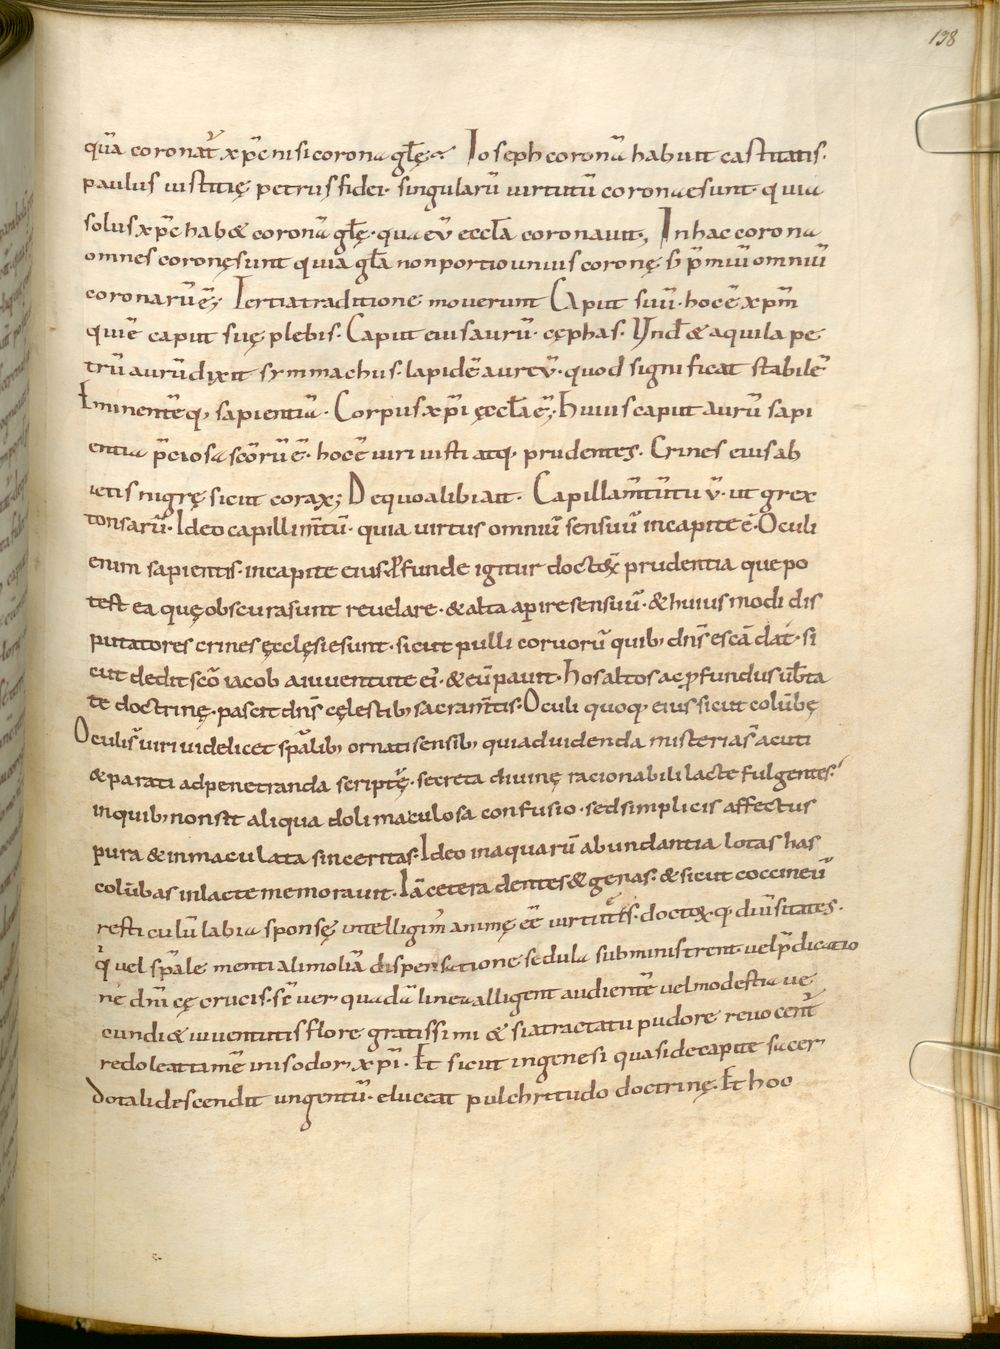 138
quā coronat̄ xp̄c nisi corona gl̄ę· Ioseph coronā habuit castitatis·
paulus iustitię petrus fidei· singularū uirtutū coronaesunt· quia
solus xp̄c hab& coronā gl̄ę· qua eū eccl̄a coronauit; In hac corona
omnes coronęsunt quia gl̄a non portio unius coronę s; p̄miū omniū
coronarū ē; Tertia traditione mouerunt Caput suū· hoc ē xp̄m
qui ē caput suę plebis· Caput eius aurū· cęphas· Vnd̄ & aquila pe
trū aurū dixit symmachus· lapidē aureū· quod significat stabilē
Eminentēq; sapientiā· Corpus xp̄i ęccl̄a ē; Huius caput aurū sapi
entia p̄ciosa scōrū ē· hoc ē uiri iusti atq· prudentes· Crines eius ab
ietis nigrę sicut corax; Dequo alibi ait· Capillam̄tū tuū· ut grex
tonsarū· Ideo capillim̄tū· quia uirtus omniū sensuū incapite ē· Oculi
enim sapientis· incapite eius funde igitur doctoꝝ prudentia que po
test ea quę obscurasunt reuelare· & alta apire sensuū· & huius modi dis
putatores crines ęcclęsiesunt· sicut pulli coruorū quib; dn̄s escā dat· si
cut dedit scō iacob aiuuentute ei· & eū pauit· Hos altos ac ꝓfundus ub̄ta
te doctrinę· pascit dn̄s cęlestib; sacram̄tis· Oculi quoq; eius sicut colūbę
Oculis uiri uidelicet sp̄alib; ornati sensib; qui aduidenda misterias acuti
& parati adpenetranda scriptę· secreta diuinę racionabili lacte fulgentes·
inquib; nonsit aliqua doli maculosa confusio· sed simplicis affectus
pura & inmaculata sinceritas· Ideo inaquarū abundantia lotas has
colūbas inlacte memorauit· Iā cetera dentes & genas· & sicut coccineū
resticulū labia sponsę intelligim̄ animę eē uirtutes· doctoꝝ q; diūsitates·
q̇ uel sp̄ale menti alimoniā dispensatione sedula subministrent· uel p̄dicatio
nē dn̄i cę crucis· sē uer quadā linea alligent audientē uel modestia ue
cundi & iuuentutis flore gratissimi & siatractatu pudore reuocent̄
redoleat tamē inis odor xp̄i· Et sicut ingenesi quasi decapite sacer
dotali descendit ungentū· eluceat pulchritudo doctrinę· Et hoc